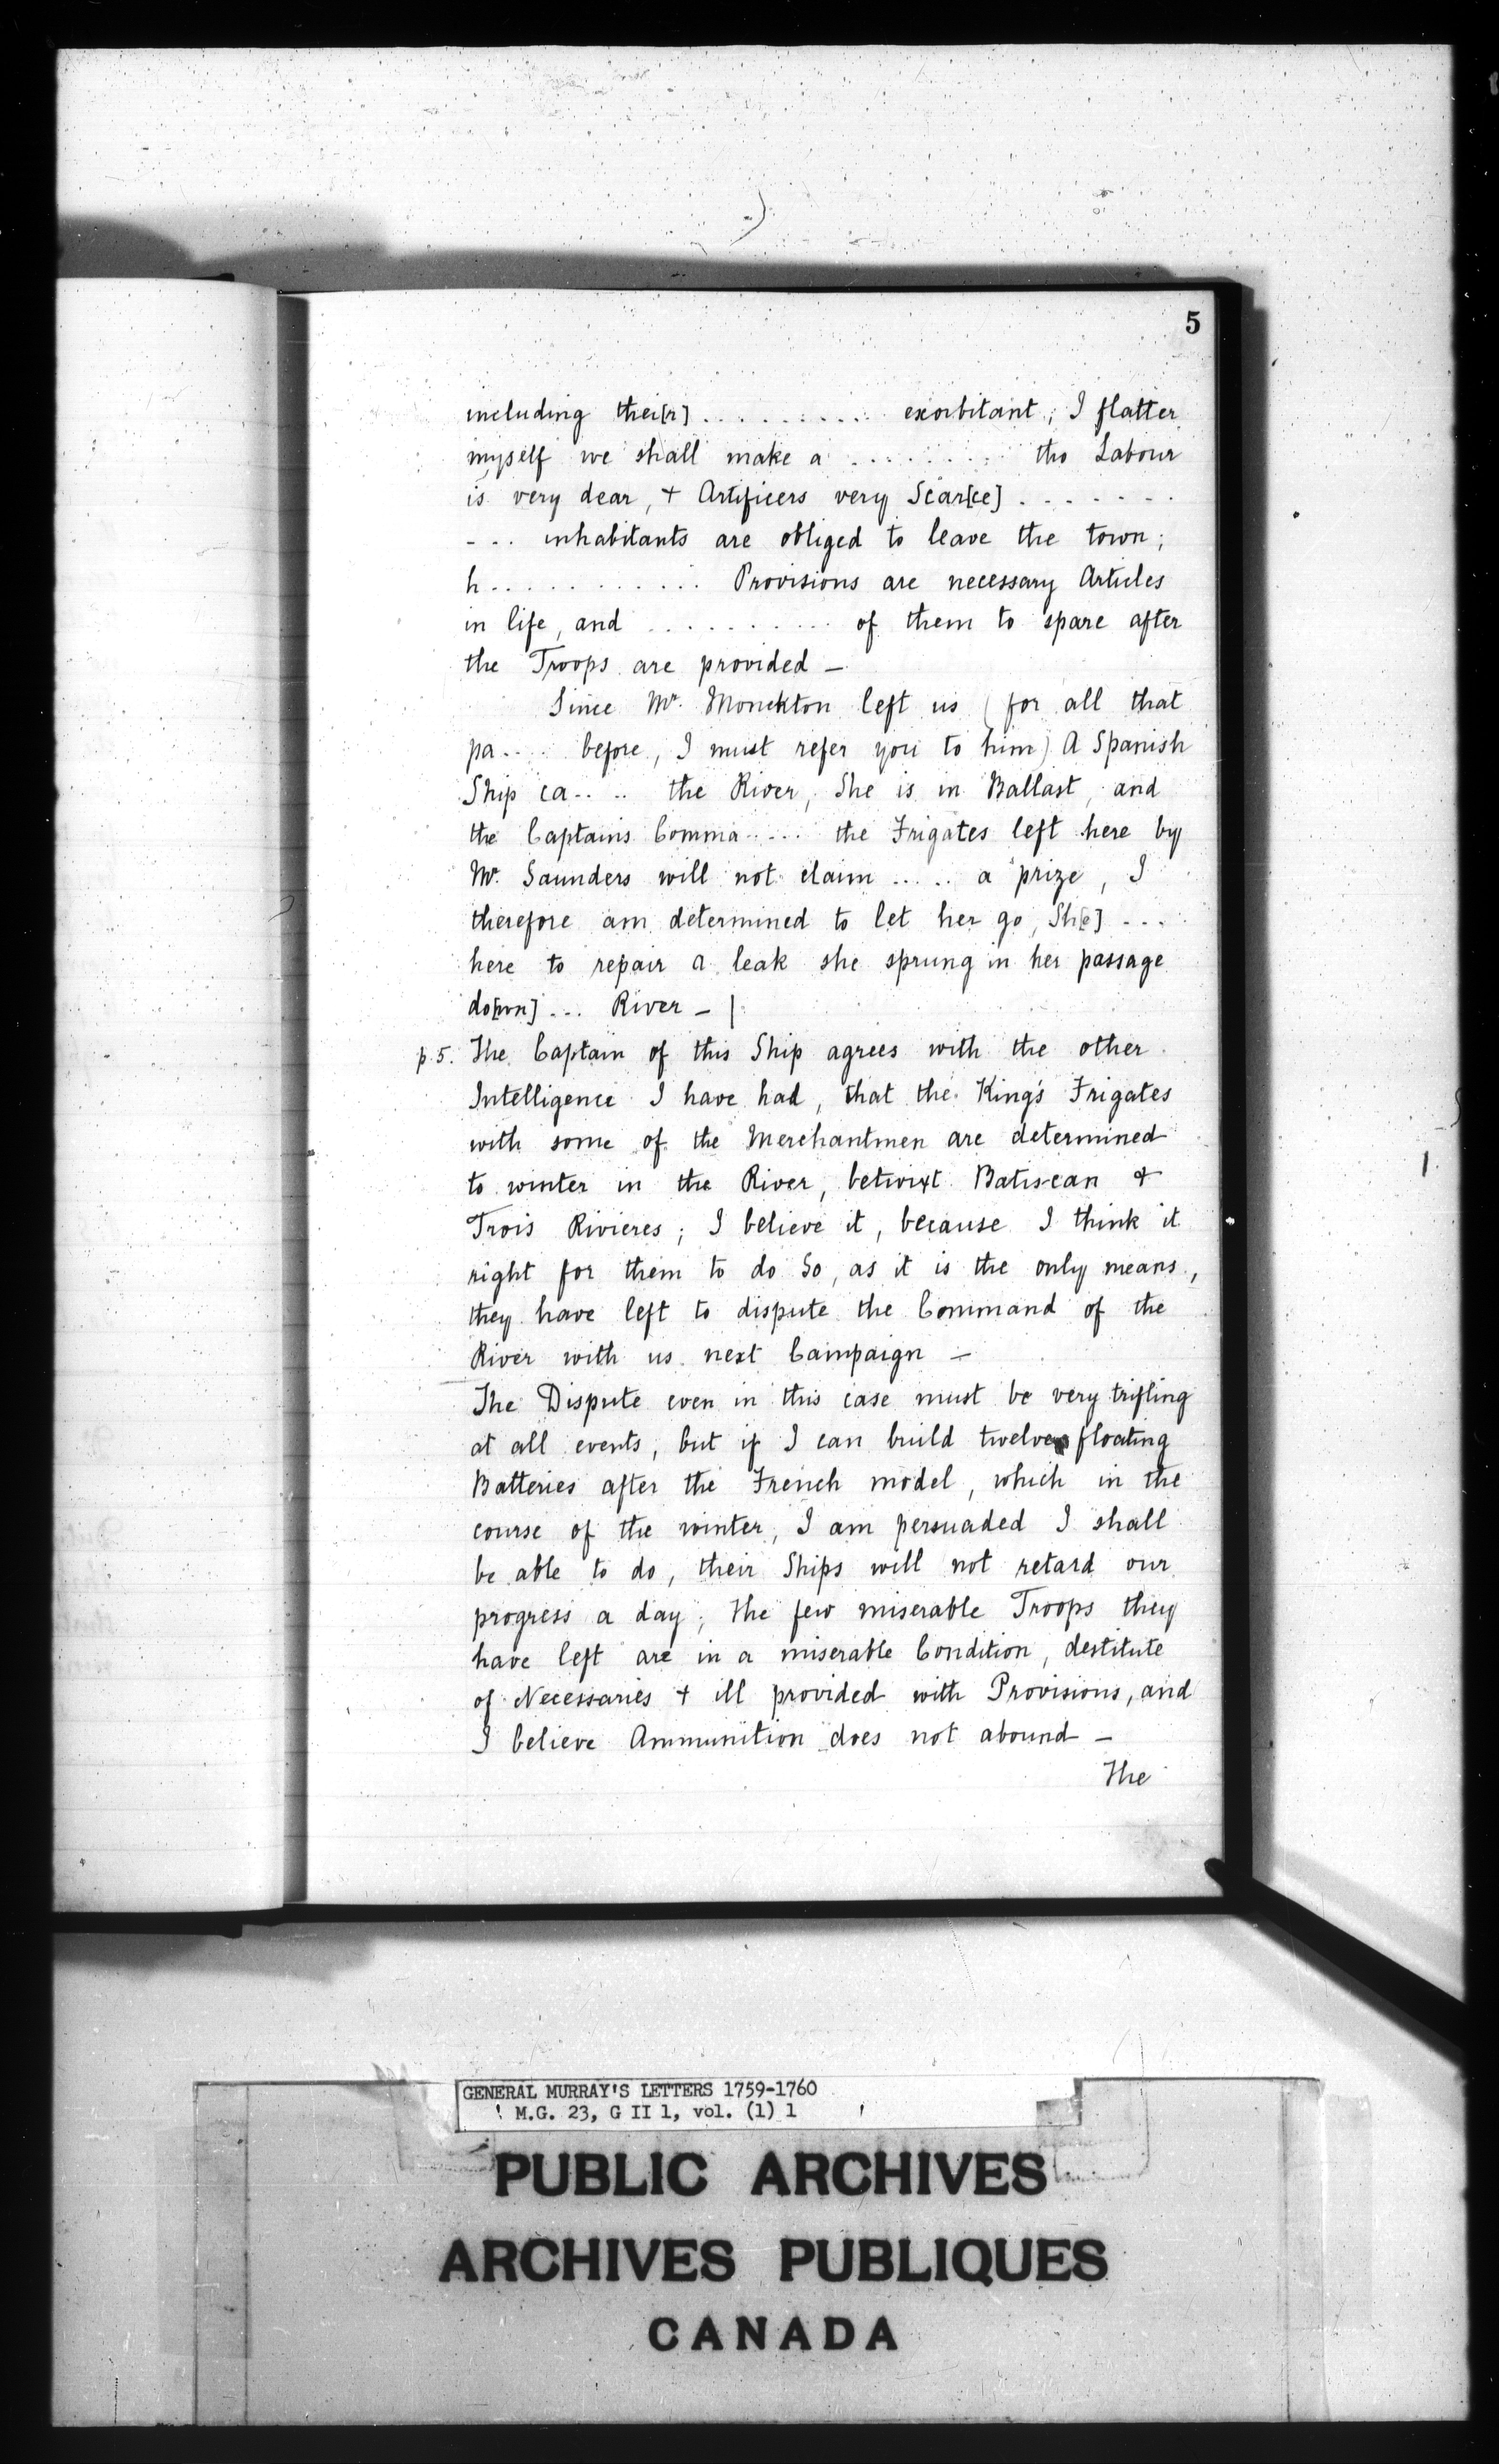 5
including thei[r] .......... exorbitant, I flatter
myself we shall make a ......... tho Labour
is very dear, + Artificers very Scar[ce] .......
--.. inhabitants are obliged to leave the town;
h............ Provisions are necessary Articles
in life, and ........... of them to spare after
the Troops are provided —
Since Mr. Monckton left us (for all that
pa.... before, I must refer you to him) A Spanish
Ship ca.. .. the River, She is in Ballast, and
the Captains Comma..... the Frigates left here by
Mr. Saunders will not claim ..... a prize, I
therefore am determined to let her go, Sh[e] ...
here to repair a leak she sprung in her passage
do[wn] ... River — |
p. 5. The Captain of this Ship agrees with the other
Intelligence I have had, that the King's Frigates
with some of the Merchantmen are determined
to winter in the River, betwixt Batiscan &
Trois Rivieres; I believe it, because I think it
right for them to do So, as it is the only means,
they have left to dispute the Command of the
River with us next Campaign —
The Dispute even in this case must be very trifling
at all events, but if I can build twelve floating
Batteries after the French model, which in the
course of the winter, I am persuaded I shall
be able to do, their Ships will not retard our
progress a day; the few miserable Troops they
have left are in a miserable Condition, destitute
of Necessaries + ill provided with Provisions, and
I believe Ammunition does not abound —
The
GENERAL MURRAY'S LETTERS 1759-1760
M.G. 23, G II 1, vol. (1) 1
PUBLIC ARCHIVES
ARCHIVES PUBLIQUES
CANADA